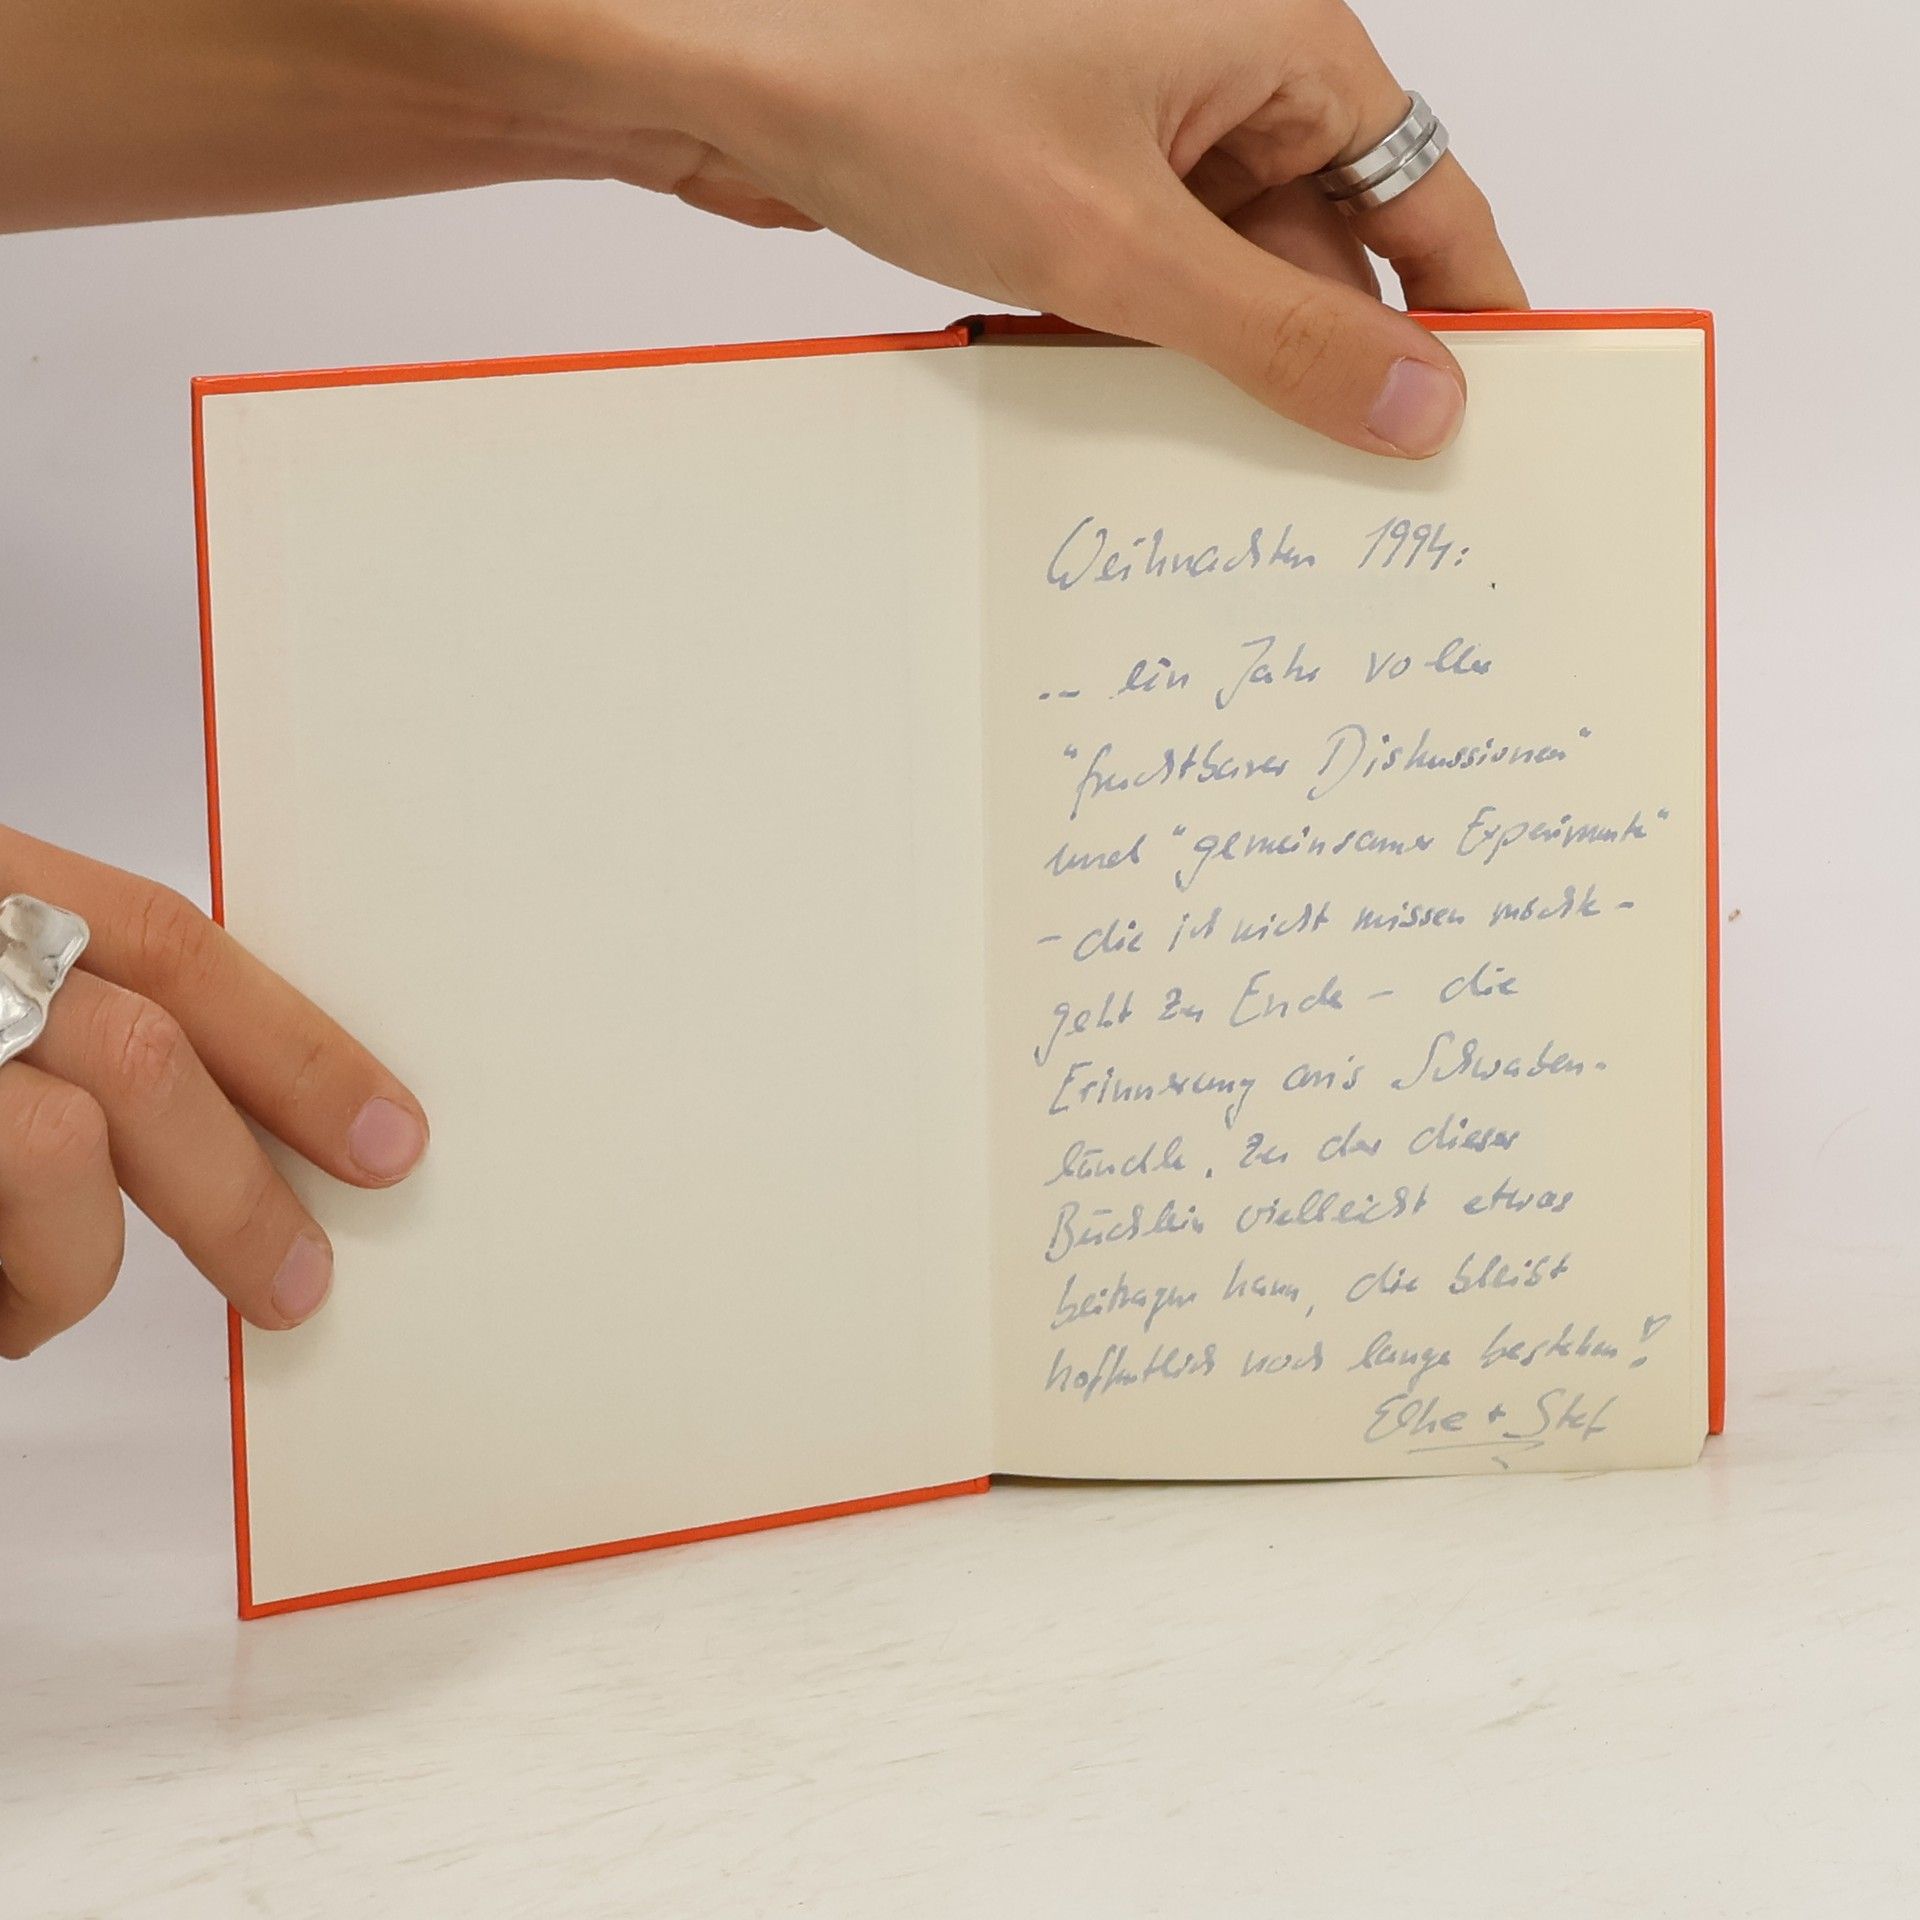 Weihnachten 1994:
-- ein Jahr voller
"fruchtbarer Diskussionen"
und "gemeinsamer Experimente"
- die ich nicht missen möchte -
geht zu Ende - die
Erinnerung ans Schwaben-
ländle, zu der dieses
Büchlein vielleicht etwas
beitragen kann, die bleibt
hoffentlich noch lange bestehen!
Elke + Stef